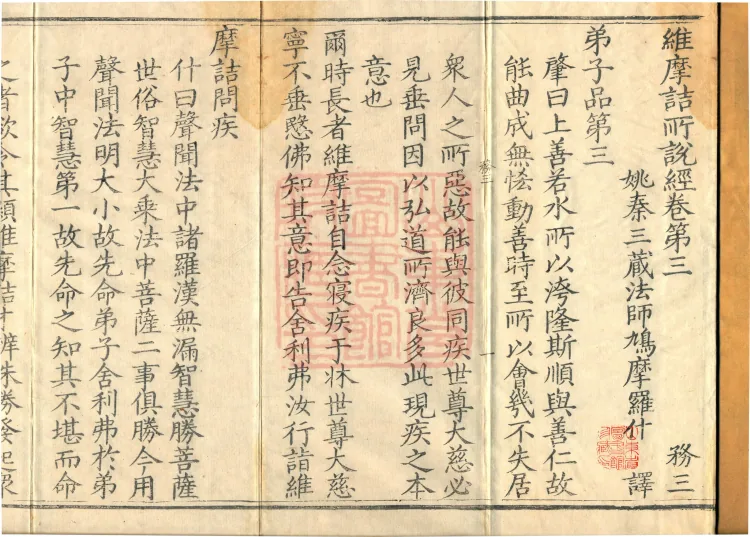 維摩詰所說經卷第三 務三
姚秦三藏法師鳩摩羅什 譯
弟子品第三
肇曰上善若水所以洿隆斯順與善仁故
能曲成無恡動善時至所以會幾不失居
務三 一
衆人之所惡故能與彼同疾世尊大慈必
見垂問因以弘道所濟良多此現疾之本
意也
爾時長者維摩詰自念寢疾于牀世尊大慈
寧不垂愍佛知其意即告舍利弗汝行詣維
摩詰問疾
什曰聲聞法中諸羅漢無漏智慧勝菩薩
世俗智慧大乘法中菩薩二事俱勝今用
聲聞法明大小故先命弟子舍利弗於弟
子中智慧第一故先命之知其不堪而命
之者欲令其顯維摩詰才辯殊勝發起衆